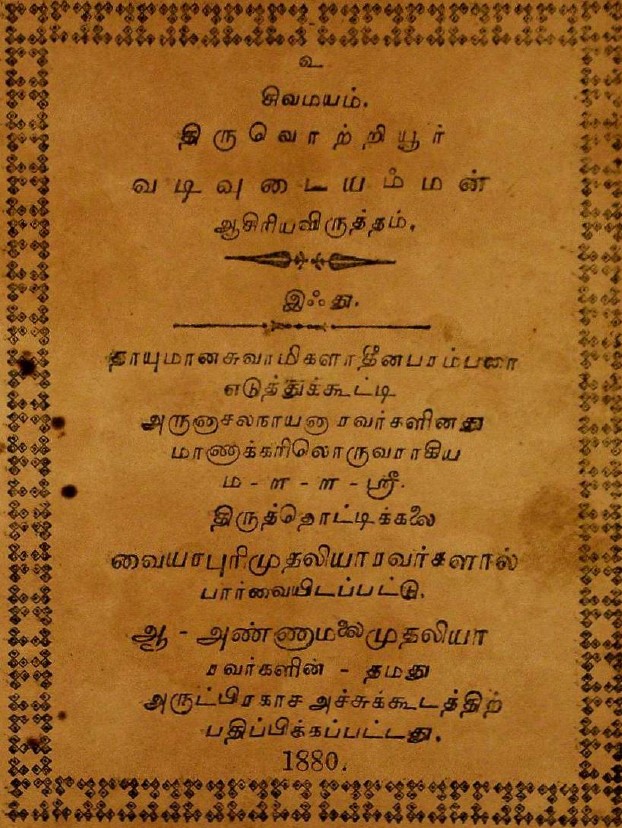 உ
சிவமயம்.
திருவொற்றியூர்
வடிவுடையம்மன்
ஆசிரியவிருத்தம்.
இஃது.
தாயுமானசுவாமிகளாதீனபரம்பரை
எடுத்துக்கூட்டி
அருணாசலநாயனாரவர்களினது
மாணாக்கரிலொருவராகிய
ம - ள - ள - ஸ்ரீ.
திருத்தொட்டிக்கலை
வையாபுரிமுதலியாரவர்களால்
பார்வையிடப்பட்டு.
ஆ - அண்ணாமலைமுதலியா
ரவர்களின் - தமது
அருட்பிரகாச அச்சுக்கூடத்திற்
பதிப்பிக்கப்பட்டது.
1880.